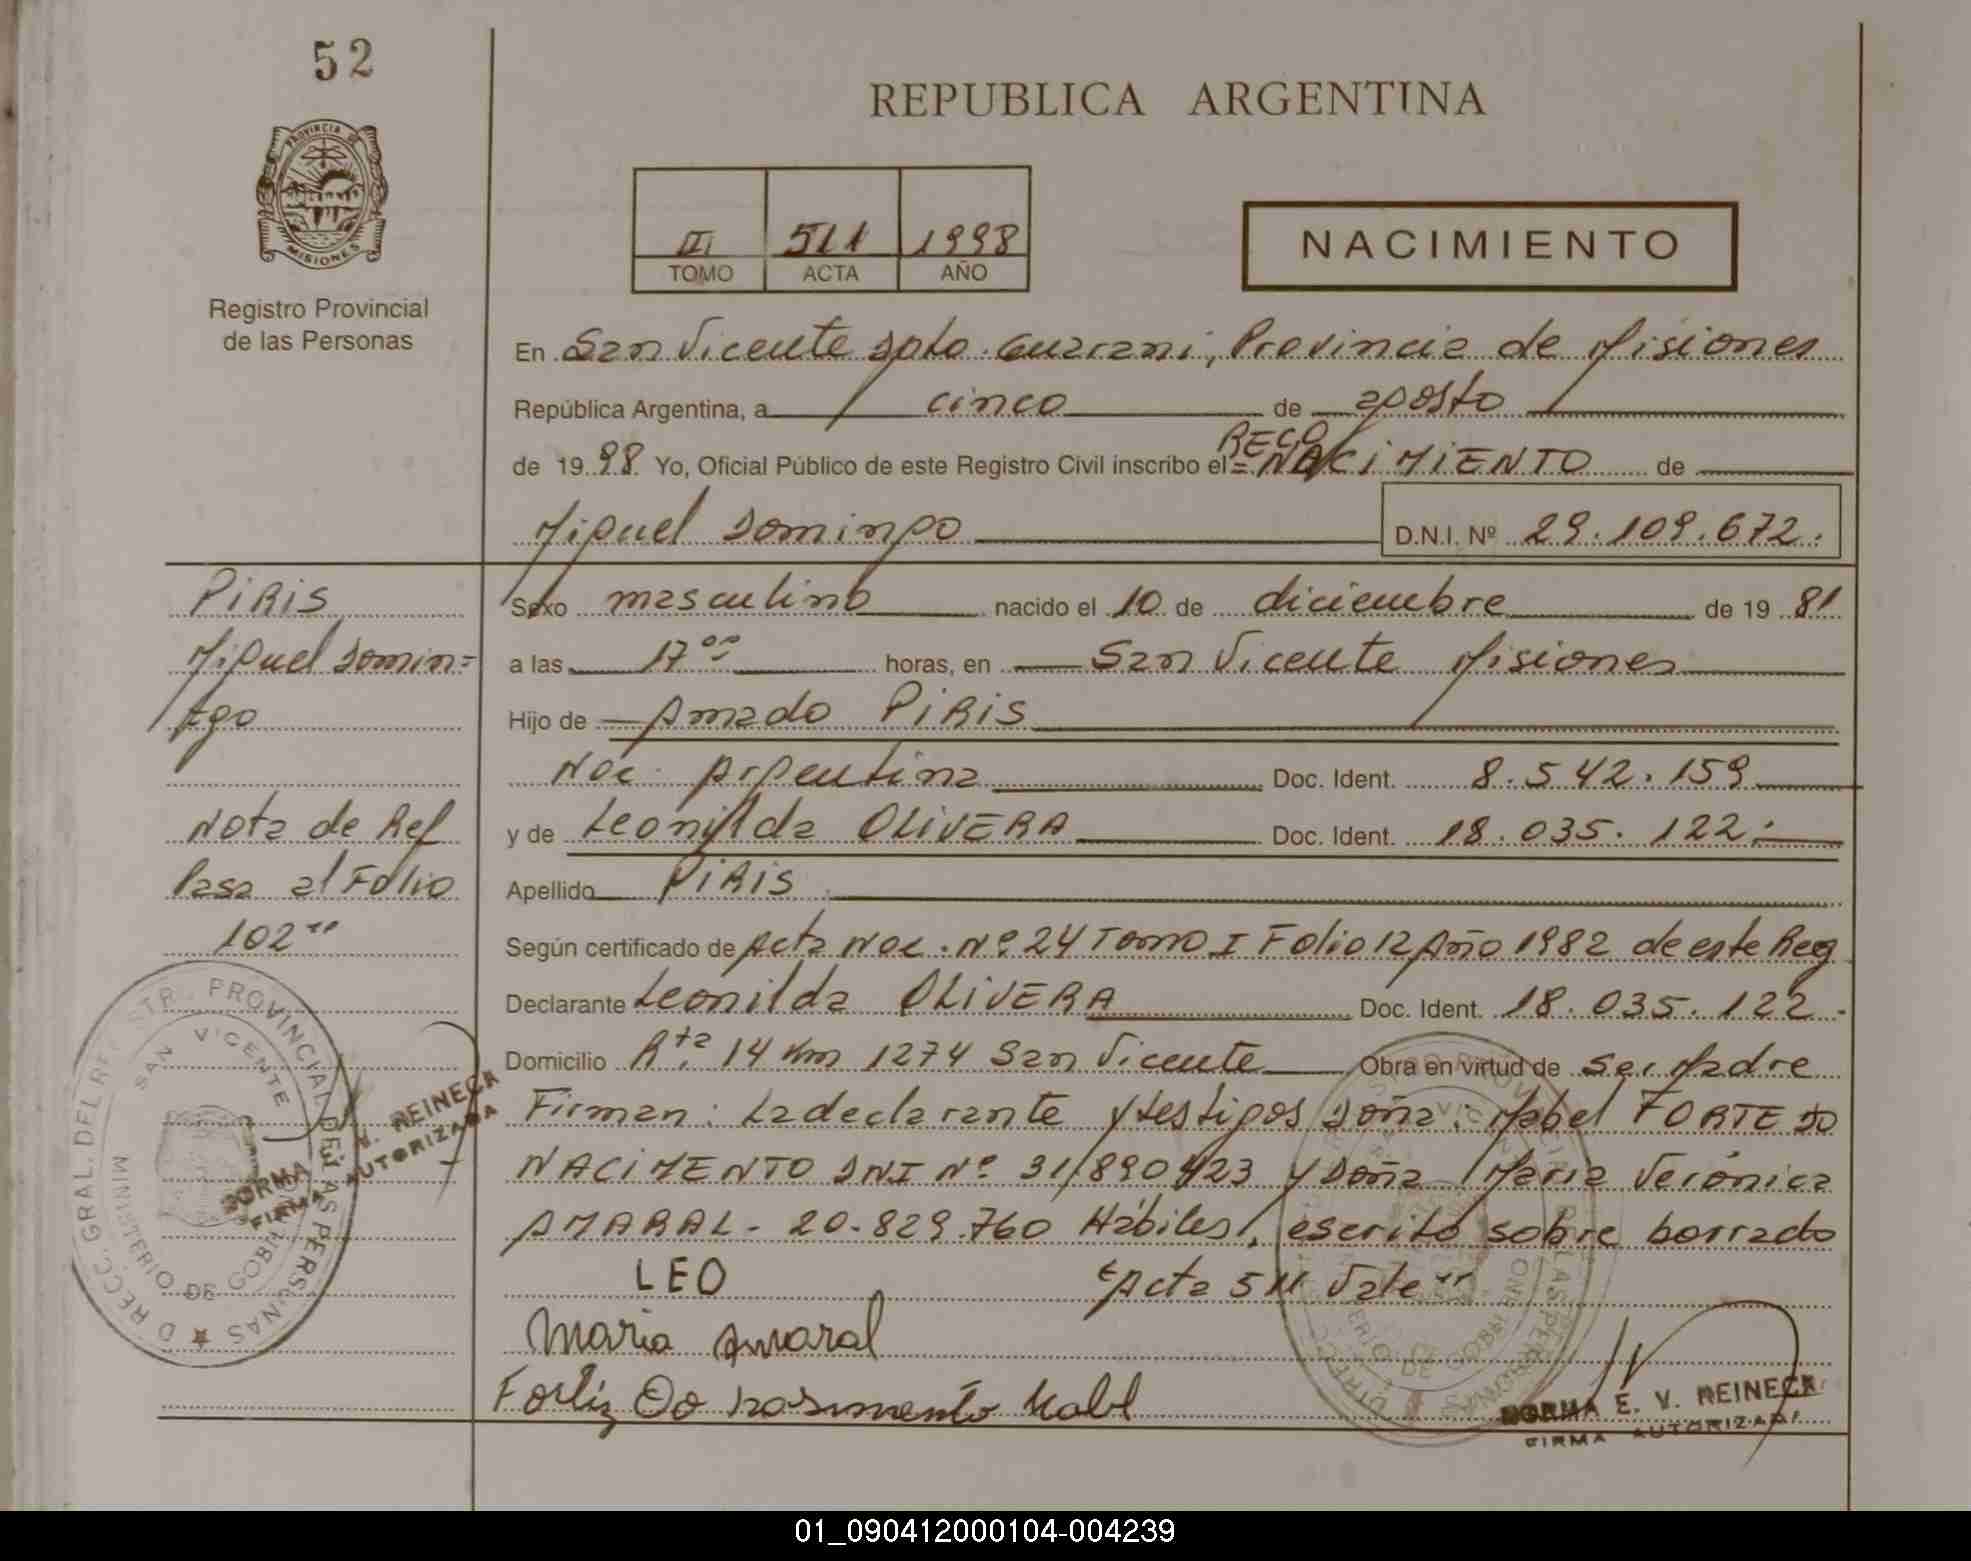 52
REPUBLICA ARGENTINA
PROVINCIA DE
MISIONES
Registro Provincial
de las Personas
III 511 1998
TOMO ACTA AÑO
NACIMIENTO
En San Vicente Dpto. Guarani, Provincia de Misiones
República Argentina, a cinco de agosto
RECO
de 1998 Yo, Oficial Público de este Registro Civil inscribo el = NACIMIENTO de
Miguel Domingo D.N.I. Nº 29.109.672.
PIRIS
Miguel Domin=
go
Nota de Ref
Pasa al Folio
102"
Sexo masculino nacido el 10 de diciembre de 19 81
a las 17 00 horas, en San Vicente Misiones
Hijo de Amado PIRIS
Nac. Argentina Doc. Ident. 8.542.159
y de Leonilda OLIVERA Doc. Ident. 18.035.122.
Apellido PIRIS
Según certificado de Acta Nac. Nº 24 Tomo I Folio 12 Año 1982 de este Reg
Declarante Leonilda OLIVERA Doc. Ident. 18.035.122.
Domicilio Rta. 14 Km 1274 San Vicente Obra en virtud de ser Madre
Firman: La declarante y testigos Doña: Mabel FORTE DO
NACIMENTO DNI Nº 31/890423 y Doña Maria Verónica
AMARAL - 20.829.760 Hábiles, escrito sobre borrado
LEO "Acta 511 Vale"
Maria Amaral
DIRECC. GRAL. DEL REGISTR. PROVINCIAL DE LAS PERSONAS
SAN VICENTE
MINISTERIO DE GOBI
NORMA E. V. REINECK
FIRMA AUTORIZADA
NORMA E. V. REINECK
FIRMA AUTORIZADA
01_090412000104-004239